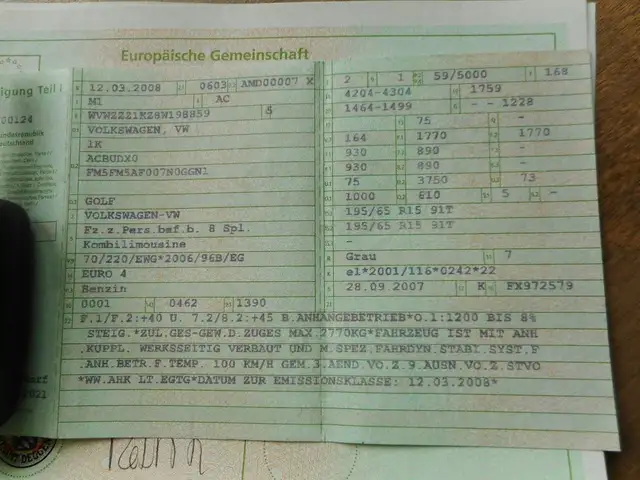 Europäische Gemeinschaft
igung Teil I
00124
12.03.2008 0603 AMD00007 X
M1 AC
WVWZZZ1KZ8W198859 5
VOLKSWAGEN, VW
1K
ACBUDX0
FM5FM5AF007N0GGN1
GOLF
VOLKSWAGEN-VW
Fz.z.Pers.bef.b. 8 Spl.
Kombilimousine
70/220/EWG*2006/96B/EG
EURO 4
Benzin
0001 0462 1390
2 1 59/5000 168
4204-4304 1759
1464-1499 - - 1228
75 -
164 1770 1770
930 890 -
930 890 -
75 3750 73
1000 610 5 -
195/65 R15 91T
195/65 R15 91T
-
Grau 7
e1*2001/116*0242*22
28.09.2007 K FX972579
F.1/F.2:+40 U. 7.2/8.2:+45 B.ANHANGEBETRIEB*O.1:1200 BIS 8%
STEIG.*ZUL.GES-GEW.D.ZUGES MAX.2770KG*FAHRZEUG IST MIT ANH
.KUPPL. WERKSSEITIG VERBAUT UND M.SPEZ.FAHRDYN.STABI.SYST.F
.ANH.BETR.F.TEMP. 100 KM/H GEM.3.AEND.VO.Z.9.AUSN.VO.Z.STVO
*WW.AHK LT.EGTG*DATUM ZUR EMISSIONSKLASSE: 12.03.2008*